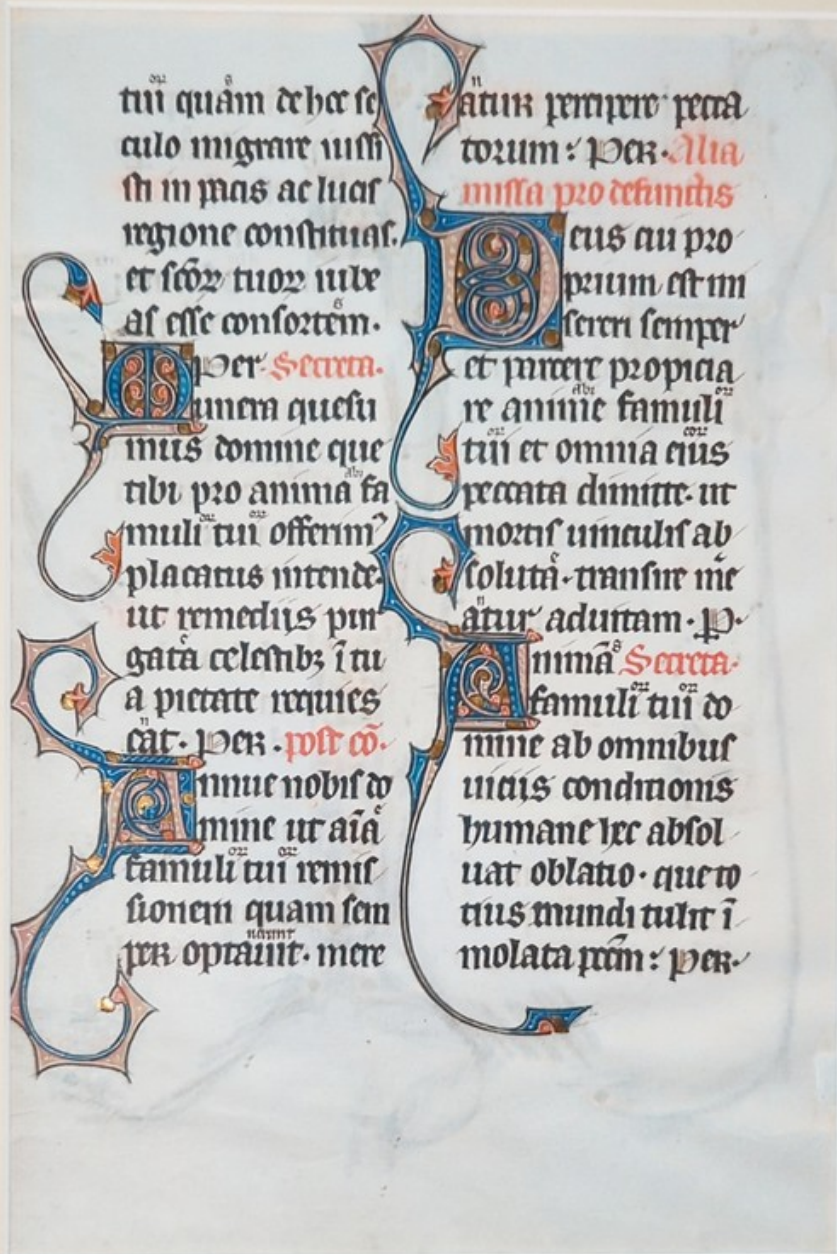 tui quam de hoc se
culo migrare iussi
sti in pacis ac lucis
regione constituas.
et scōꝝ tuoꝝ iube
as esse consortem.
Per. Secreta.
Munera quesu
mus domine que
tibi pro anima fa
muli tui offerimꝰ
placatus intende.
ut remediis pur
gata celestibꝫ ī tu
a pietate requies
cat. Per. post cō.
Annue nobis do
mine ut aīa
famuli tui remis
sionem quam sem
per optauit. mere
atur percipere pecca
torum: Per. Alia
missa pro defunctis
Deus cui pro
prium est mi
sereri semper
et parcere propicia
re anime famuli
tui et omnia eius
peccata dimitte. ut
mortis uinculis ab
soluta. transire me
atur ad uitam. P.
Animā Secreta.
famuli tui do
mine ab omnibus
uiciis conditionis
humane hec absol
uat oblatio. que to
tius mundi tulit ī
molata pccm: Per.